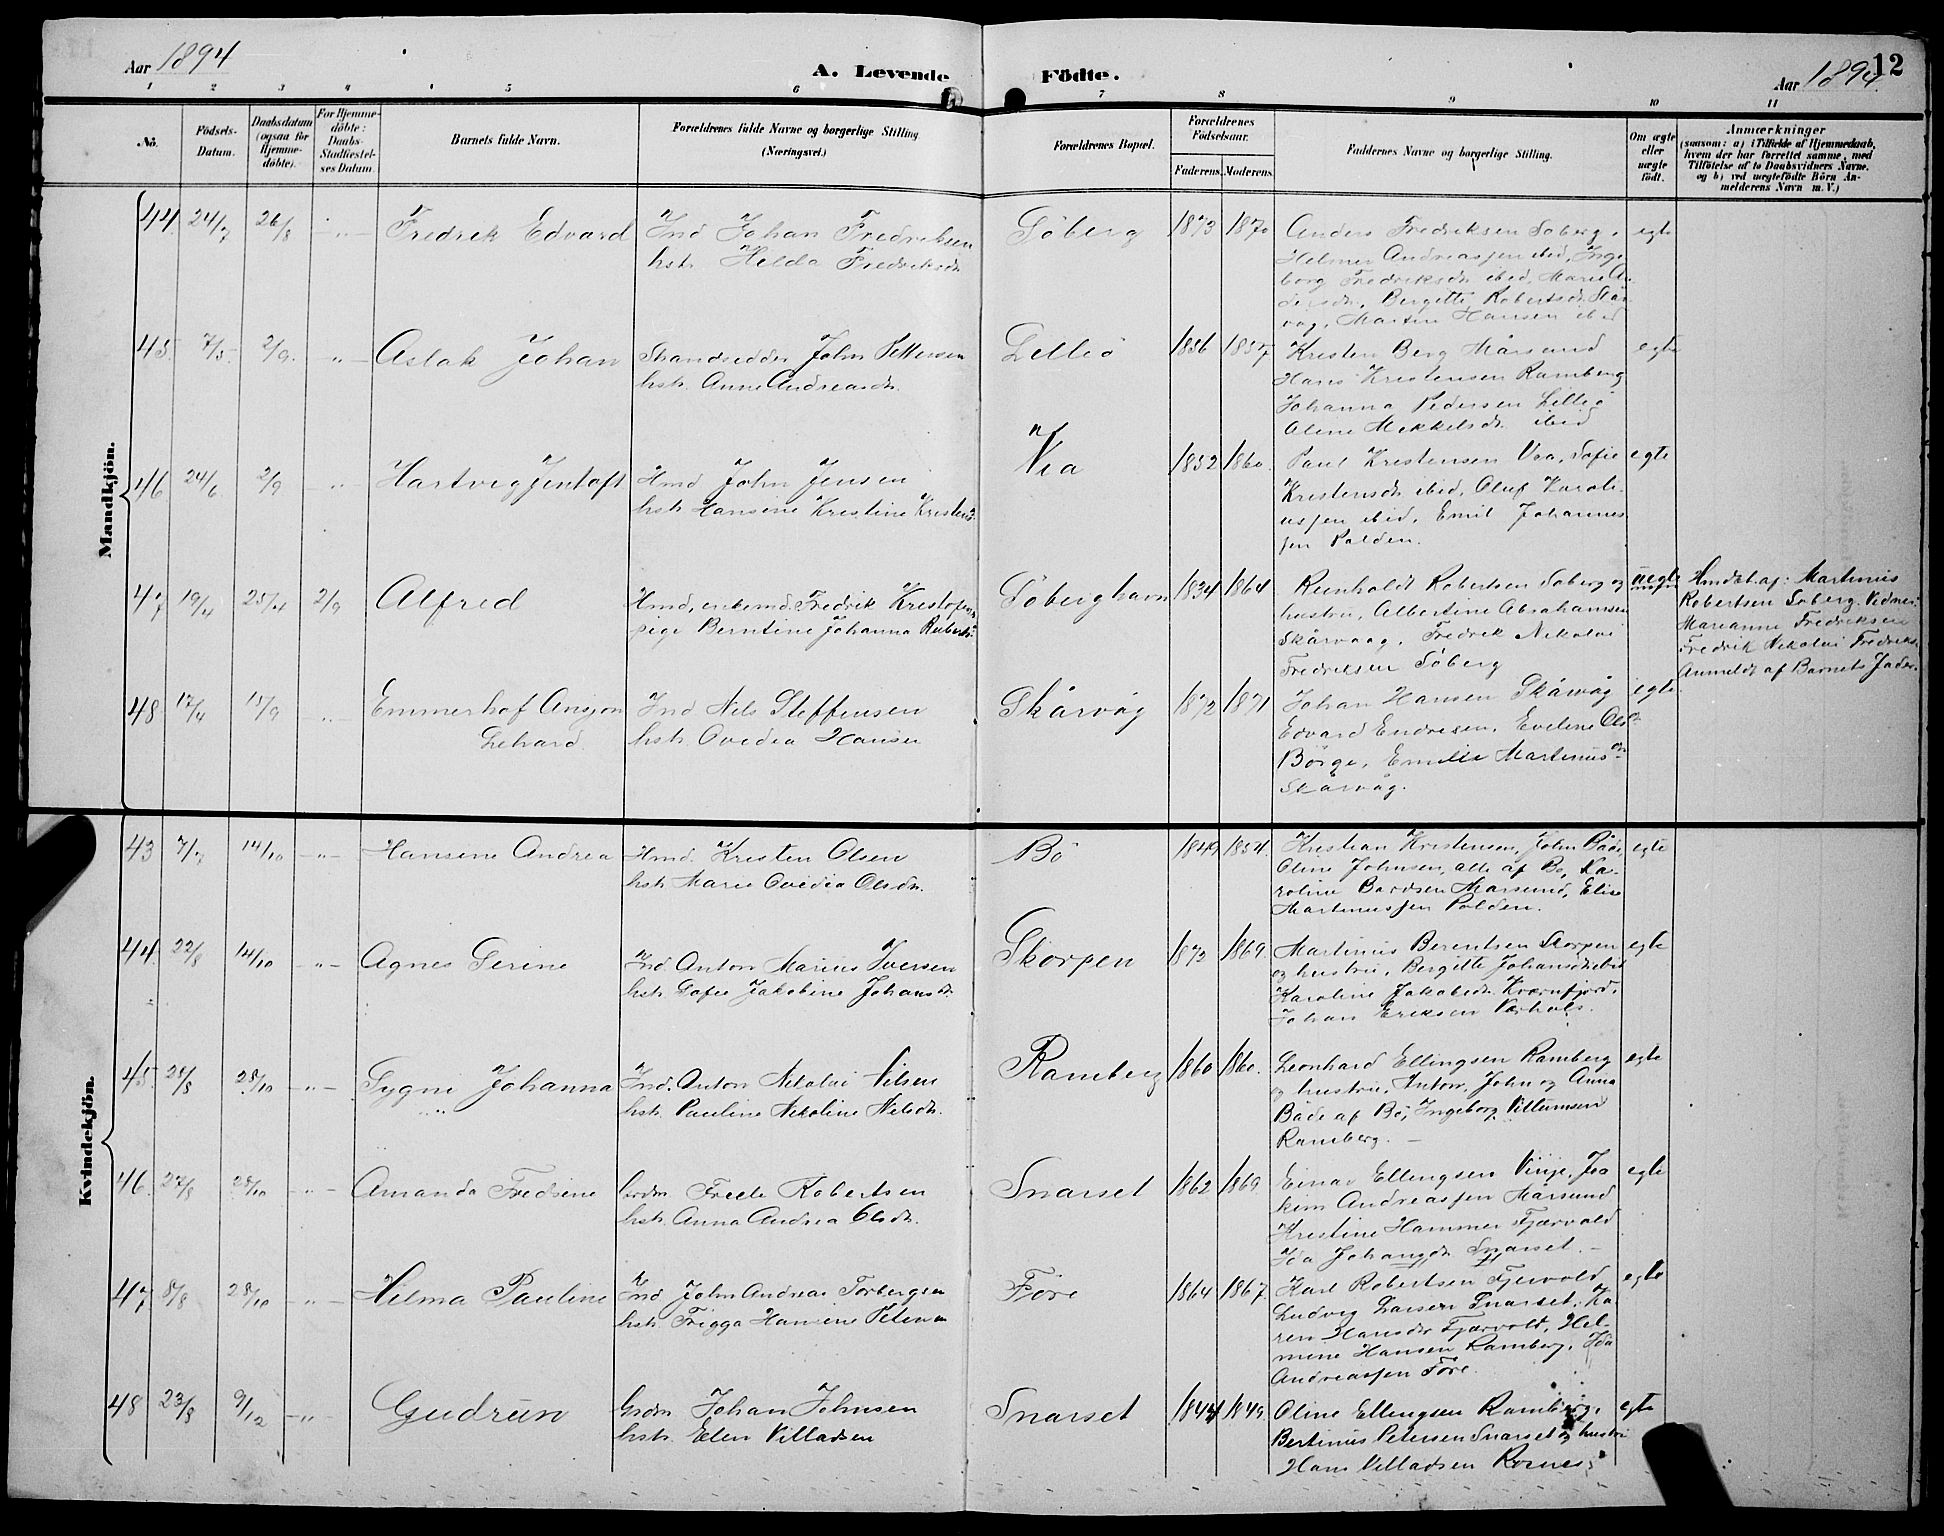 Aar 1894
A. Levende Födte.
Aar 1894.
12
1 2 3 4 5 6 7 8 9 10 11
No.
Födsels-Datum.
Daabsdatum (ogsaa for Hjemmedöbte).
For Hjemmedöbte: Daabs-Stadfæstelses Datum.
Barnets fulde Navn.
Forældrenes fulde Navne og borgerlige Stilling (Næringsvei.)
Forældrenes Bopæl.
Forældrenes Födselsaar.
Faderens. Moderens.
Faddernes Navne og borgerlige Stilling.
Om ægte eller uægte födt.
Anmærkninger
(saasom: a) i Tilfælde af Hjemmedaab, hvem der har forrettet samme, med Tilföielse af to Daabsvidners Navne. og b) ved uægtefödte Börn Anmelderens Navn m. V.)
Mandkjön.
44 24/7 26/8 -"- Fredrik Edvard
Ind Johan Fredriksen
hstr. Helda Fredriksdr.
Söberg 1873 1870
Anders Fredriksen Söberg,
Helmer Andreassen ibid, Inge
borg Fredriksdr. ibid, Marie An
dersdr, Bergitte Robertsdr. Skår
våg, Martin Hansen ibid
egte
45. 7/5 2/9. -"- Aslak Johan
Strandsidder John Pettersen
hstr. Anne Andreasdr.
Lillеö 1856 1857
Kristen Berg Mårsund
Hans Kristensen Ramberg
Johanna Pedersen Lilleö
Oline Mekkelsdr. ibid
egte
46 24/6 2/9 -"- Hartvig Jentoft
Hmd John Jensen
hstr. Hansine Kristine Kristensdr.
Vea 1852 1860.
Paul Kristensen Vea, Sofie
Kristensdr. ibid, Oluf Karoli
ussen ibid, Emil Johannes
sen Polden.
egte
47 19/4 25/4 2/9 Alfred
Hmd, enkemd. Fredrik Kristofers.
pige Berntine Johanna Robertsdr.
Söberghavn 1834 1864
Reinholdt Robertsen Söberg og
hustru, Albertine Abrahamsen
Skårvaag, Fredrik Nikolai
Fredriksen Söberg
uegte
Hmdöbt af: Martinus
Robertsen Söberg. Vidner:
Marianne Fredriksen
Fredrik Nikolai Fredriks.
Anmeldt af Barnets Fader.
48 17/4 15/9 -"- Emmerhof Ansjon
Lehard
Ind Nils Steffensen
hstr. Ovedia Hansen
Skårvåg 1872 1871
Johan Hansen Skårvåg
Edvard Endresen, Eveline Ols
Börge, Emilie Martinusdr.
Skårvåg.
egte
Kvindekjön.
43 7/7 14/10 -"- Hansine Andrea
Hmd. Kristen Olsen
hstr. Marie Ovedia Olsdr.
Bö 1849 1854.
Kristian Kristensen, John Både,
Oline Johnsen, alle af Bö, Ka-
roline Bardsen Mårsund, Elise
Martinussen Polden.
egte
44 22/8 14/10 -"- Agnes Serine
Ind. Anton Marius Iversen
hstr. Sofie Jakobine Johansdr.
Skorpen 1872 1869.
Martinus Berentsen Skorpen
og hustru, Bergitte Johansdr. ibid
Karoline Jakobsdr. Kværnfjord,
Johan Eriksen Verhals.
egte
45 21/8 28/10 -"- Sygne Johanna
Ind. Anton Nikolai Nilsen
hstr. Pauline Nikoline Nilsdr.
Ramberg 1860 1860.
Leonhard Ellingsen Ramberg
og hustru, Anton, John og Anna
Bade af Bö, Ingeborg Villumsen
Ramberg. -
egte
46. 27/8 28/10 -"- Amanda Fredsine
Grdm. Frede Robertsen
hstr. Anna Andrea Olsdr.
Snarset 1862 1869
Einar Ellingsen Vinje, Joa
kim Andreassen Mårsund
Kristine Hammer Fjærvold
Ida Johansdr. Snarset. -
egte
47 8/8 28/10 -"- Hilma Pauline
Ind John Andreas Torbergsen
hstr. Frigga Hansine Petersen
Före 1864 1867.
Karl Robertsen Fjervold
Ludvig Larsen Snarset, Ka
ren Hansdr. Fjærvold, Hel-
mine Hansen Ramberg, Ida
Andreassen Före.
egte
48 23/8 9/12 -"- Gudrun
Grdm Johan Johnsen
hstr. Elen Villadsen
Snarset 1844 1849.
Oline Ellingsen Ramberg,
Bertinus Petersen Snarset og hustru
Hans Villadsen Rosnes
egte